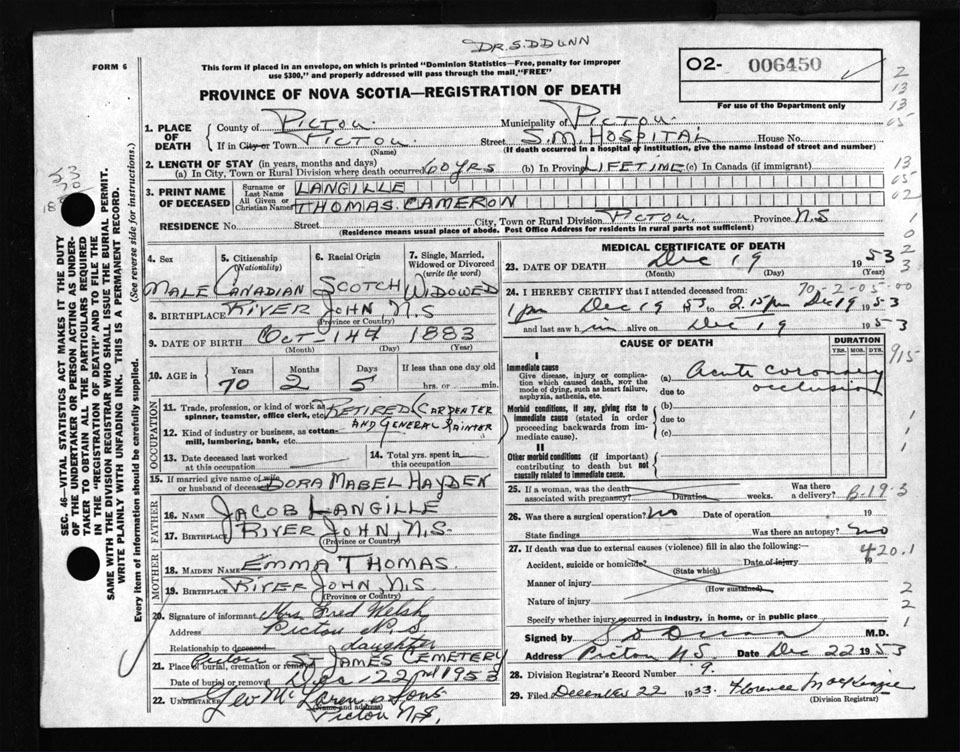 DR. S. D DUNN
FORM 6
This form if placed in an envelope, on which is printed "Dominion Statistics—Free, penalty for improper
use $300," and properly addressed will pass through the mail "FREE"
PROVINCE OF NOVA SCOTIA—REGISTRATION OF DEATH
02- 006450
For use of the Department only
2
13
13
05
13
05
02
1
0
2
3
SEC. 46—VITAL STATISTICS ACT MAKES IT THE DUTY
OF THE UNDERTAKER OR PERSON ACTING AS UNDER-
TAKER TO OBTAIN ALL THE PARTICULARS REQUIRED
IN THE "REGISTRATION OF DEATH" AND TO FILE THE
SAME WITH THE DIVISION REGISTRAR WHO SHALL ISSUE THE BURIAL PERMIT.
WRITE PLAINLY WITH UNFADING INK. THIS IS A PERMANENT RECORD.
Every item of information should be carefully supplied. (See reverse side for instructions.)
53
70
1. PLACE OF DEATH
County of Pictou Municipality of Pictou
If in City or Town PICTOU (Name) Street S.M. HOSPITAL House No.
(If death occurred in a hospital or institution, give the name instead of street and number)
2. LENGTH OF STAY (in years, months and days)
(a) In City, Town or Rural Division where death occurred 60 yrs (b) In Province LIFETIME (c) In Canada (if immigrant)
3. PRINT NAME OF DECEASED
Surname or Last Name LANGILLE
All Given or Christian Names THOMAS CAMERON
RESIDENCE No. Street City, Town or Rural Division PICTOU Province N.S
(Residence means usual place of abode. Post Office Address for residents in rural parts not sufficient)
4. Sex 5. Citizenship (Nationality) 6. Racial Origin 7. Single, Married, Widowed or Divorced (write the word)
MALE CANADIAN SCOTCH WIDOWED
8. BIRTHPLACE RIVER JOHN N.S
(Province or Country)
9. DATE OF BIRTH OCT- 14th 1883
(Month) (Day) (Year)
10. AGE in Years Months Days If less than one day old
70 2 5 hrs. or min.
OCCUPATION
11. Trade, profession, or kind of work as spinner, teamster, office clerk, etc. RETIRED CARPENTER
AND GENERAL PAINTER
12. Kind of industry or business, as cotton-mill, lumbering, bank, etc.
13. Date deceased last worked at this occupation
14. Total yrs. spent in this occupation
15. If married give name of wife or husband of deceased DORA MABEL HAYDEN
FATHER
16. NAME JACOB LANGILLE
17. BIRTHPLACE RIVER JOHN, N.S.
(Province or Country)
MOTHER
18. MAIDEN NAME EMMA THOMAS.
19. BIRTHPLACE RIVER JOHN, N.S
(Province or Country)
20. Signature of informant Mrs Fred Welsh
Address Pictou N.S
Relationship to deceased daughter
21. Place of burial, cremation or removal Pictou ST JAMES CEMETERY
Date of burial or removal Dec 22nd 1953
22. UNDERTAKER Geo McLaren & Sons
(Name and address)
Pictou N.S.
MEDICAL CERTIFICATE OF DEATH
23. DATE OF DEATH Dec 19 1953
(Month) (Day) (Year)
70-2-05-00
24. I HEREBY CERTIFY that I attended deceased from:
1 pm Dec 19 53 to 2.15 pm Dec 19 1953
and last saw him alive on Dec 19 1953
CAUSE OF DEATH DURATION
YRS. MOS. DYS.
915
I
Immediate cause
Give disease, injury or complication which caused death, not the mode of dying, such as heart failure, asphyxia, asthenia, etc.
(a) Acute coronary
occlusion
due to
Morbid conditions, if any, giving rise to immediate cause (stated in order proceeding backwards from immediate cause).
(b)
due to
(c)
1
1
1
II
Other morbid conditions (if important) contributing to death but not causally related to immediate cause.
25. If a woman, was the death associated with pregnancy? Duration weeks. Was there a delivery?
B-19-3
26. Was there a surgical operation? no Date of operation 19
State findings Was there an autopsy? no
27. If death was due to external causes (violence) fill in also the following:—
420.1
Accident, suicide or homicide? Date of injury 19
(State which)
Manner of injury
(How sustained)
Nature of injury
2
2
1
Specify whether injury occurred in industry, in home, or in public place
Signed by S D Dunn M.D.
Address Pictou N.S. Date Dec 22 1953
28. Division Registrar's Record Number 9.
29. Filed December 22 1953. Florence MacKenzie
(Division Registrar)